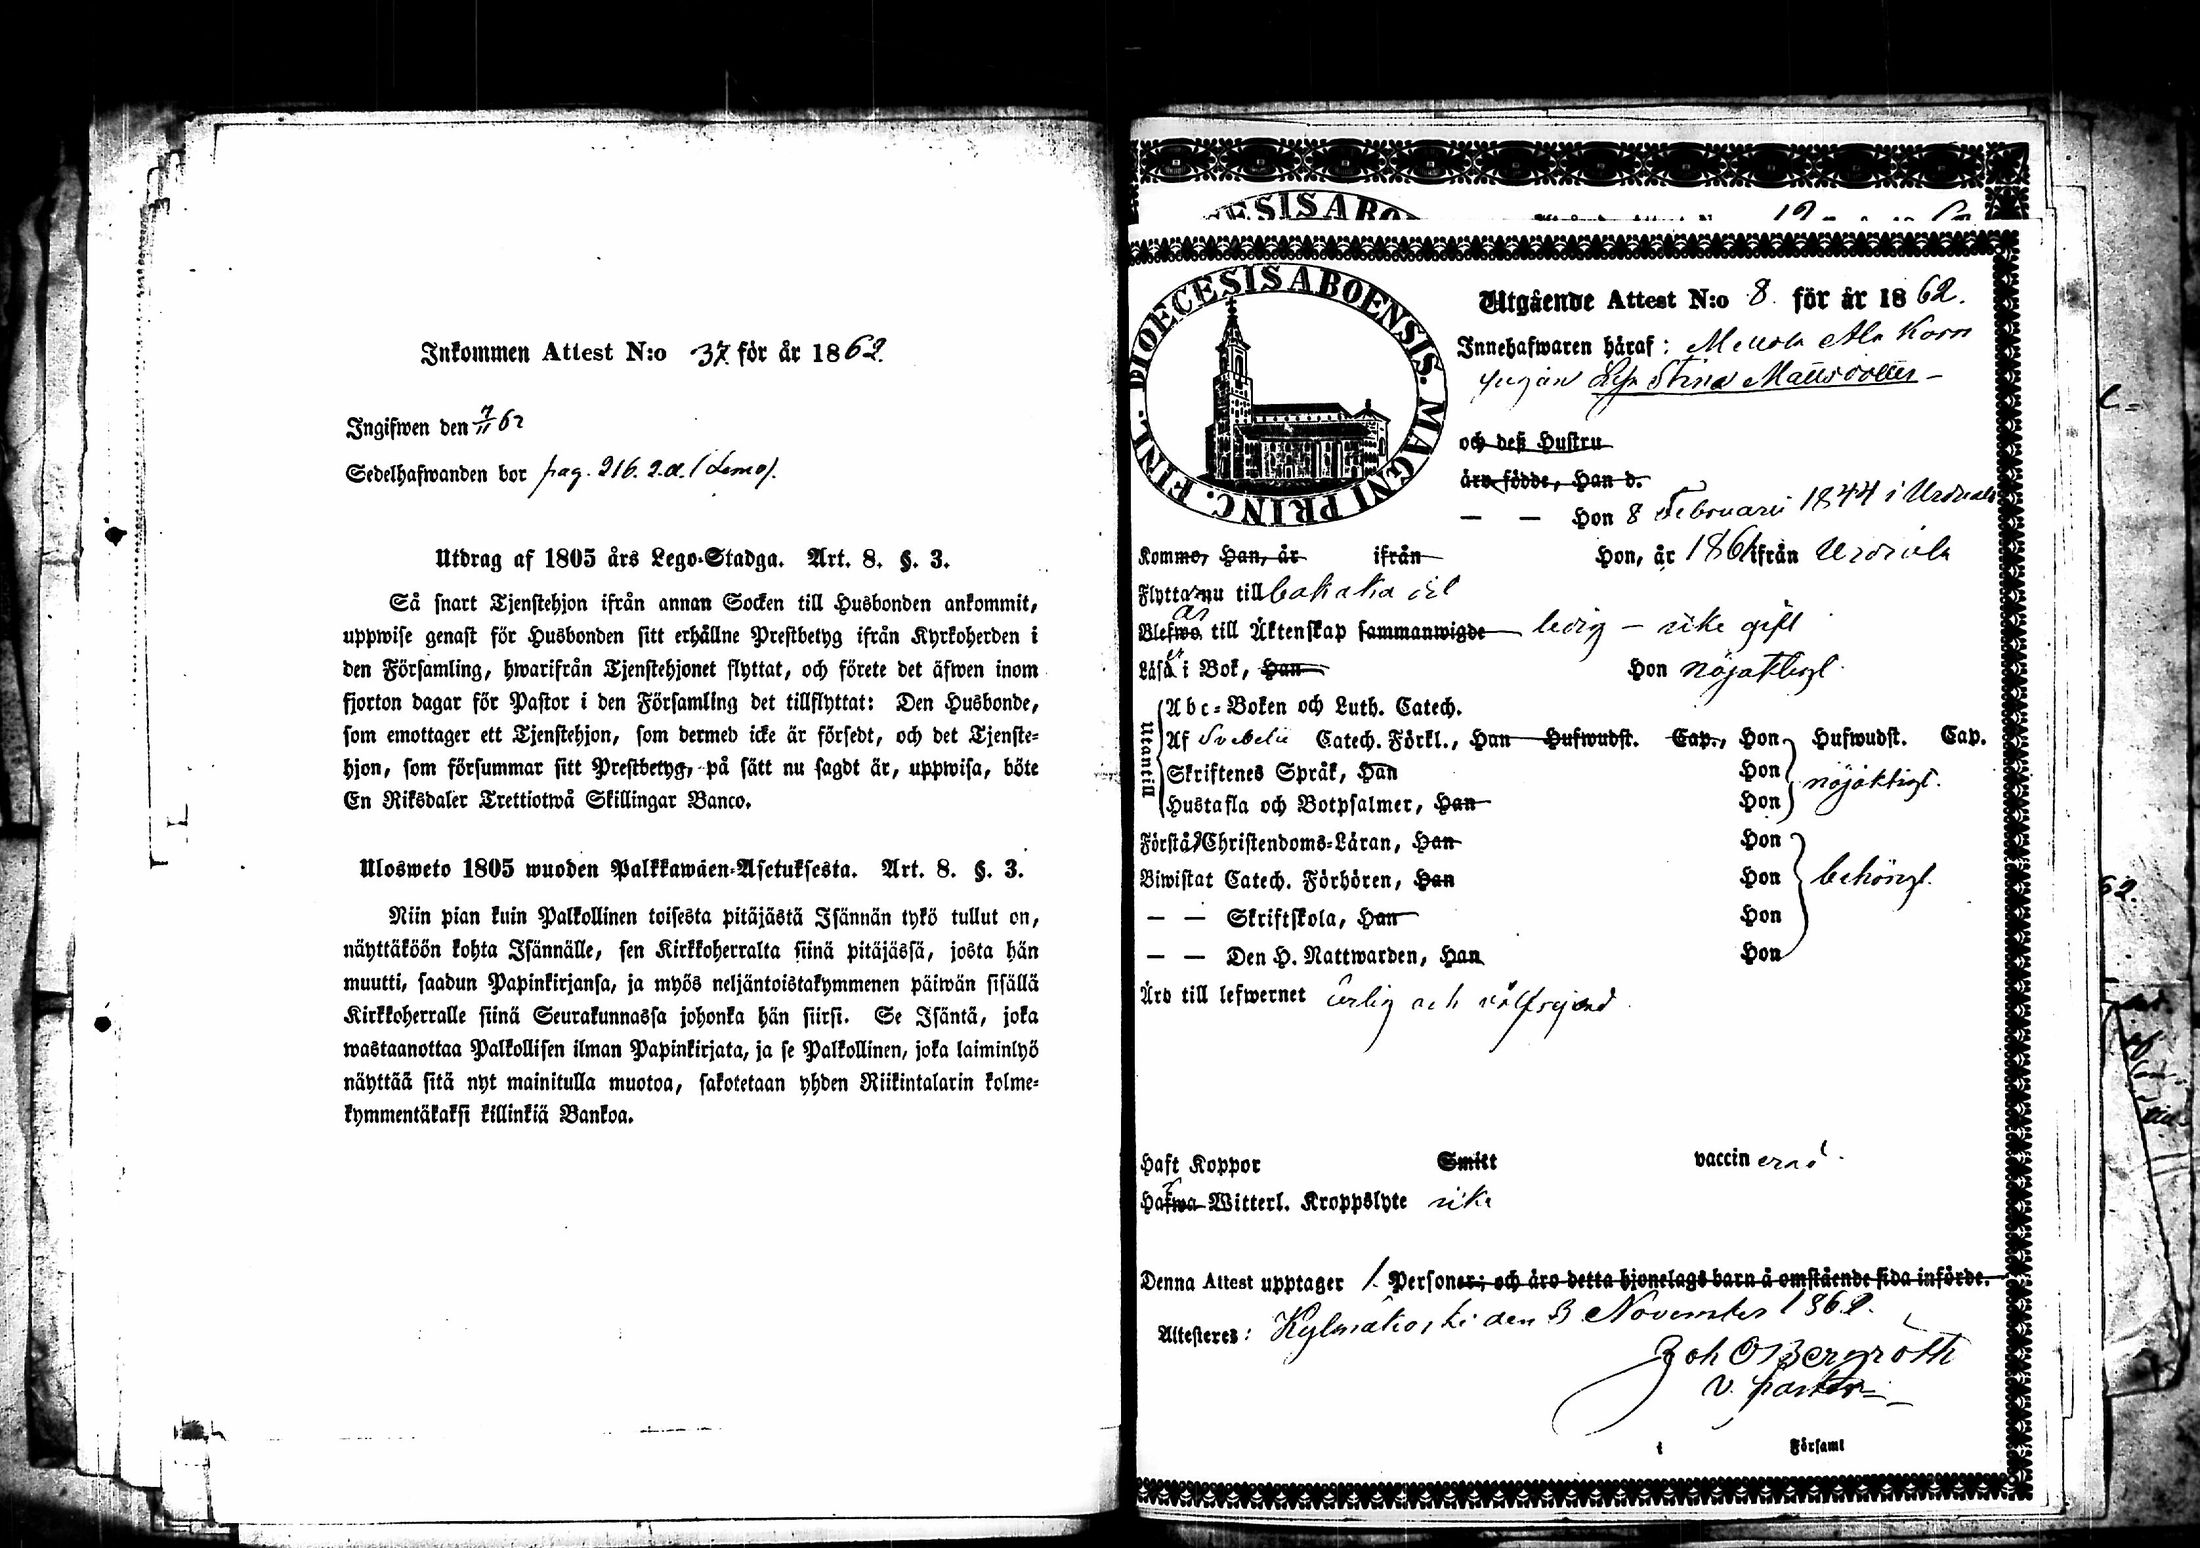 Inkommen Attest N:o 37. för år 1862.
Ingifwen den 7/11 62
Sedelhafwanden bor pag. 216. 2.d. (Lemo).
Utdrag af 1805 års Lego-Stadga. Art. 8. §. 3.
Så snart Tjenstehjon ifrån annan Socken till Husbonden ankommit,
uppwise genast för Husbonden sitt erhållne Prestbetyg ifrån Kyrkoherden i
den Församling, hwarifrån Tjenstehjonet flyttat, och förete det äfwen inom
fjorton dagar för Pastor i den Församling det tillflyttat: Den Husbonde,
som emottager ett Tjenstehjon, som dermed icke är försedt, och det Tjenste-
hjon, som försummar sitt Prestbetyg, på sätt nu sagdt är, uppwisa, böte
En Riksdaler Trettiotwå Skillingar Banco.
Ulosweto 1805 wuoden Palkkawäen-Asetuksesta. Art. 8. §. 3.
Niin pian kuin Palkollinen toisesta pitäjästä Isännän tykö tullut on,
näyttäköön kohta Isännälle, sen Kirkkoherralta siinä pitäjässä, josta hän
muutti, saadun Papinkirjansa, ja myös neljäntoistakymmenen päiwän sisällä
Kirkkoherralle siinä Seurakunnassa johonka hän siirsi. Se Isäntä, joka
wastaanottaa Palkollisen ilman Papinkirjata, ja se Palkollinen, joka laiminlyö
näyttää sitä nyt mainitulla muotoa, sakotetaan yhden Riikintalarin kolme-
kymmentäkaksi killinkiä Bankoa.
DIOECESIS ABOENSIS. MAGNI PRINC. FINL.
Utgående Attest N:o 8. för år 1862.
Innehafwaren häraf: Mellola Ala Korn
pigan Stina Mattsdotter
och deß Hustru
äro födde, Han d.
— — Hon 8 Februarii 1844 i Urdiala
Kommo, Han, år ifrån Hon, år 1861 ifrån Urdiala
Flytta nu till
Blefwo till Äktenskap sammanwigde ledig – icke gift
Läsa i Bok, Han Hon nöjaktigt.
Utantill
Abc-Boken och Luth. Catech.
Af Svebelii Catech. Förkl., Han Hufwudst. Cap., Hon Hufwudst. Cap.
Skriftenes Språk, Han Hon nöjaktigt.
Hustafla och Botpsalmer, Han Hon
Förstå Christendoms-Läran, Han Hon
Biwistat Catech. Förhören, Han Hon behörigt.
— — Skriftskola, Han Hon
— — Den H. Nattwarden, Han Hon
Äro till lefwernet ärlig och välfrejdad
Haft Koppor Smitt vaccinerad.
Hafwa Witterl. Kroppslyte icke
Denna Attest upptager 1. Personer; och äro detta hjonelags barn å omstående sida införde.
Attesteres: Kylmäkoski den 3 November 1862.
Joh O Bergroth
v. pastor
i Församl